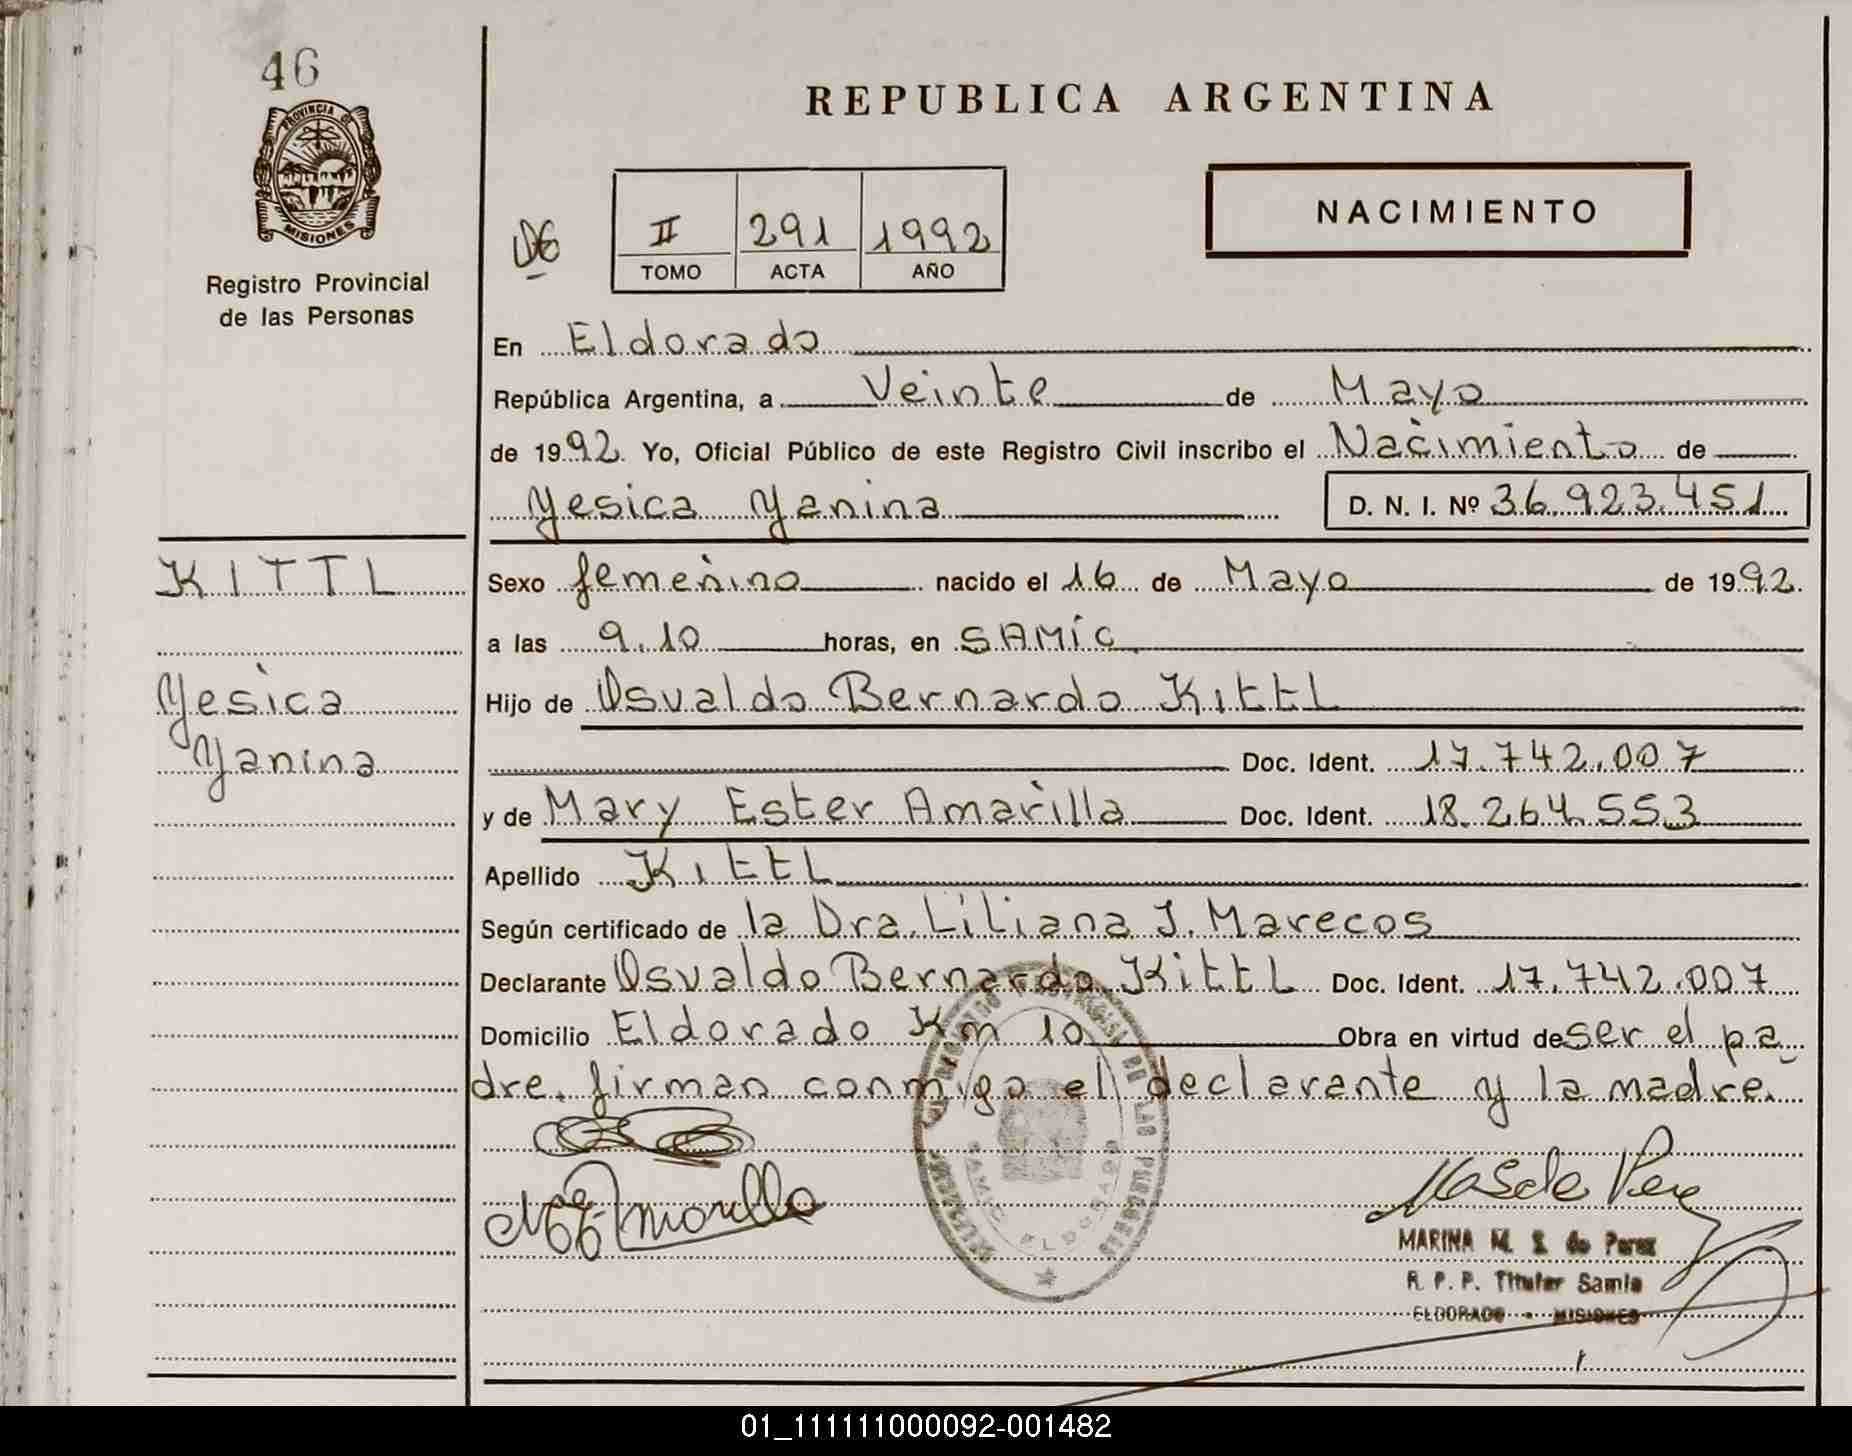 46
PROVINCIA DE
MISIONES
Registro Provincial
de las Personas
KITTL
Yesica
Yanina
REPUBLICA ARGENTINA
II 291 1992
TOMO ACTA AÑO
NACIMIENTO
En Eldorado
República Argentina, a Veinte de Mayo
de 1992. Yo, Oficial Público de este Registro Civil inscribo el Nacimiento de
Yesica Yanina D. N. I. Nº 36.923.451
Sexo femenino nacido el 16 de Mayo de 1992.
a las 9.10 horas, en SAMIC.
Hijo de Osvaldo Bernardo Kittl
Doc. Ident. 17.742.007
y de Mary Ester Amarilla Doc. Ident. 18.264.553
Apellido Kittl
Según certificado de la Dra. Liliana J. Marecos
Declarante Osvaldo Bernardo Kittl Doc. Ident. 17.742.007
Domicilio Eldorado Km 10 Obra en virtud de ser el pa
dre. firman conmigo el declarante y la madre.
MARINA M. S. de Perez
R. P. P. Titular Samic
ELDORADO - MISIONES
01_111111000092-001482